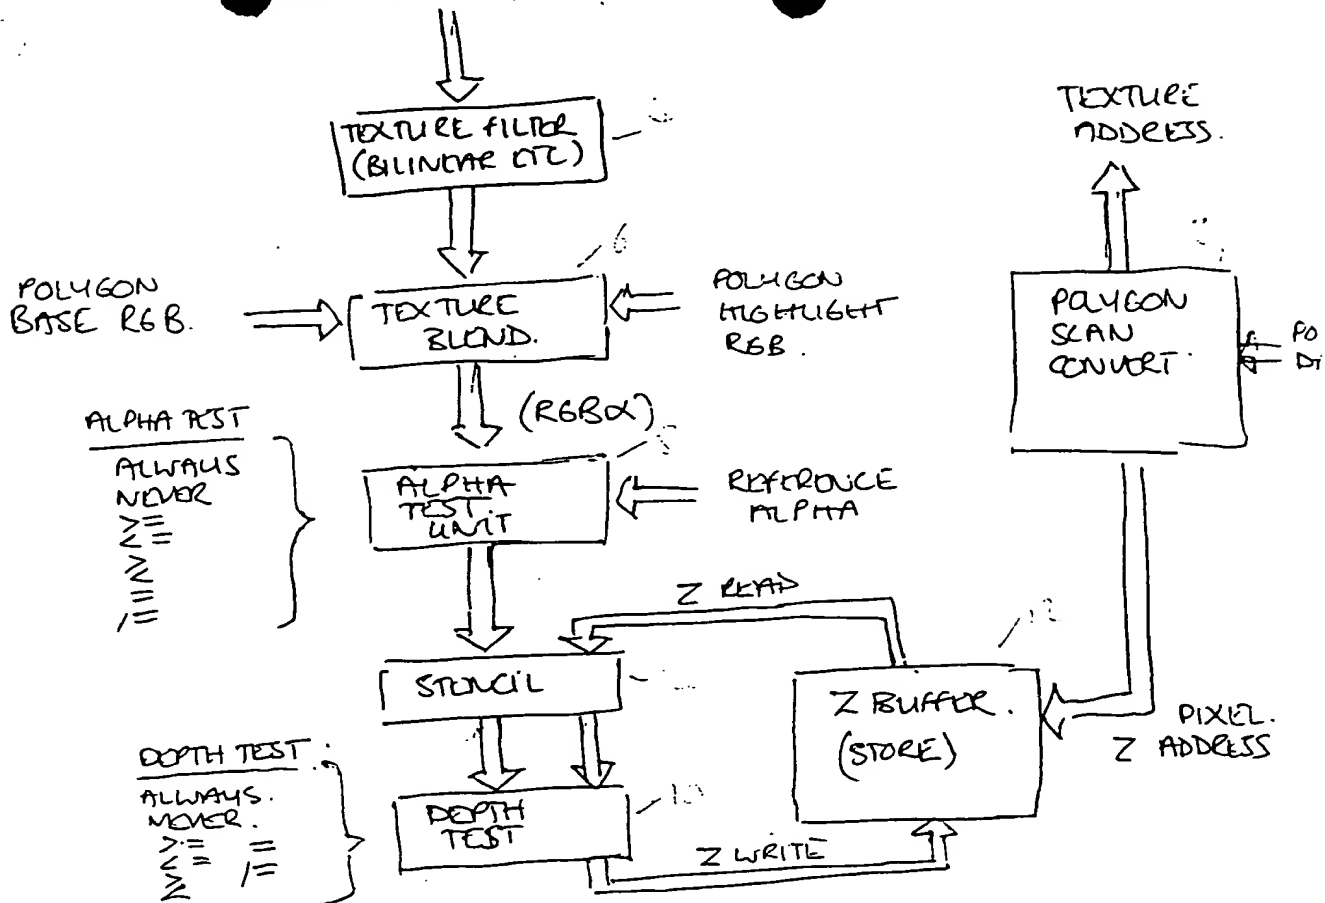 TEXTURE FILTER
(BILINEAR ETC)
TEXTURE
ADDRESS.
6
POLYGON
BASE RGB.
TEXTURE
BLEND.
POLYGON
HIGHLIGHT
RGB.
POLYGON
SCAN
CONVERT.
PO
(RGBα)
ALPHA TEST
ALLWAYS
NEVER
>=
<=
>
<
=
/=
ALPHA
TEST
UNIT
REFERENCE
ALPHA
Z READ
STENCIL
12
Z BUFFER.
(STORE)
PIXEL.
Z ADDRESS
DEPTH TEST.
ALLWAYS.
NEVER.
>= =
<= /=
>
<
DEPTH
TEST
10
Z WRITE